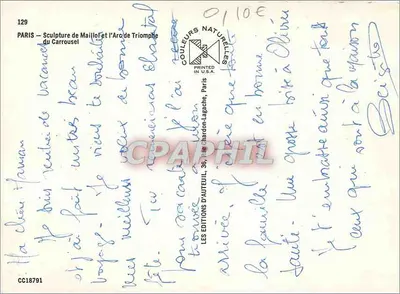 129
PARIS — Sculpture de Maillol et l'Arc de Triomphe
du Carrousel
0,10€
COULEURS NATURELLES
PRINTED
IN U.S.A.
LES EDITIONS D'AUTEUIL, 36, rue Chardon-Lagache, Paris
CPARAMA.COM
CC18791
Ma chère Maman
Je suis rentrée de vacances
et j'ai fait un très beau
voyage. Je viens te souhaiter
mes meilleurs vœux de bonne
fête. Tu remercieras Chantal
pour sa carte. Je l'ai
trouvée à mon
arrivée. J'espère que toute
la famille est en bonne
santé. Une grosse bise à Olivier
Je t'embrasse ainsi que tous
ceux qui sont à la maison